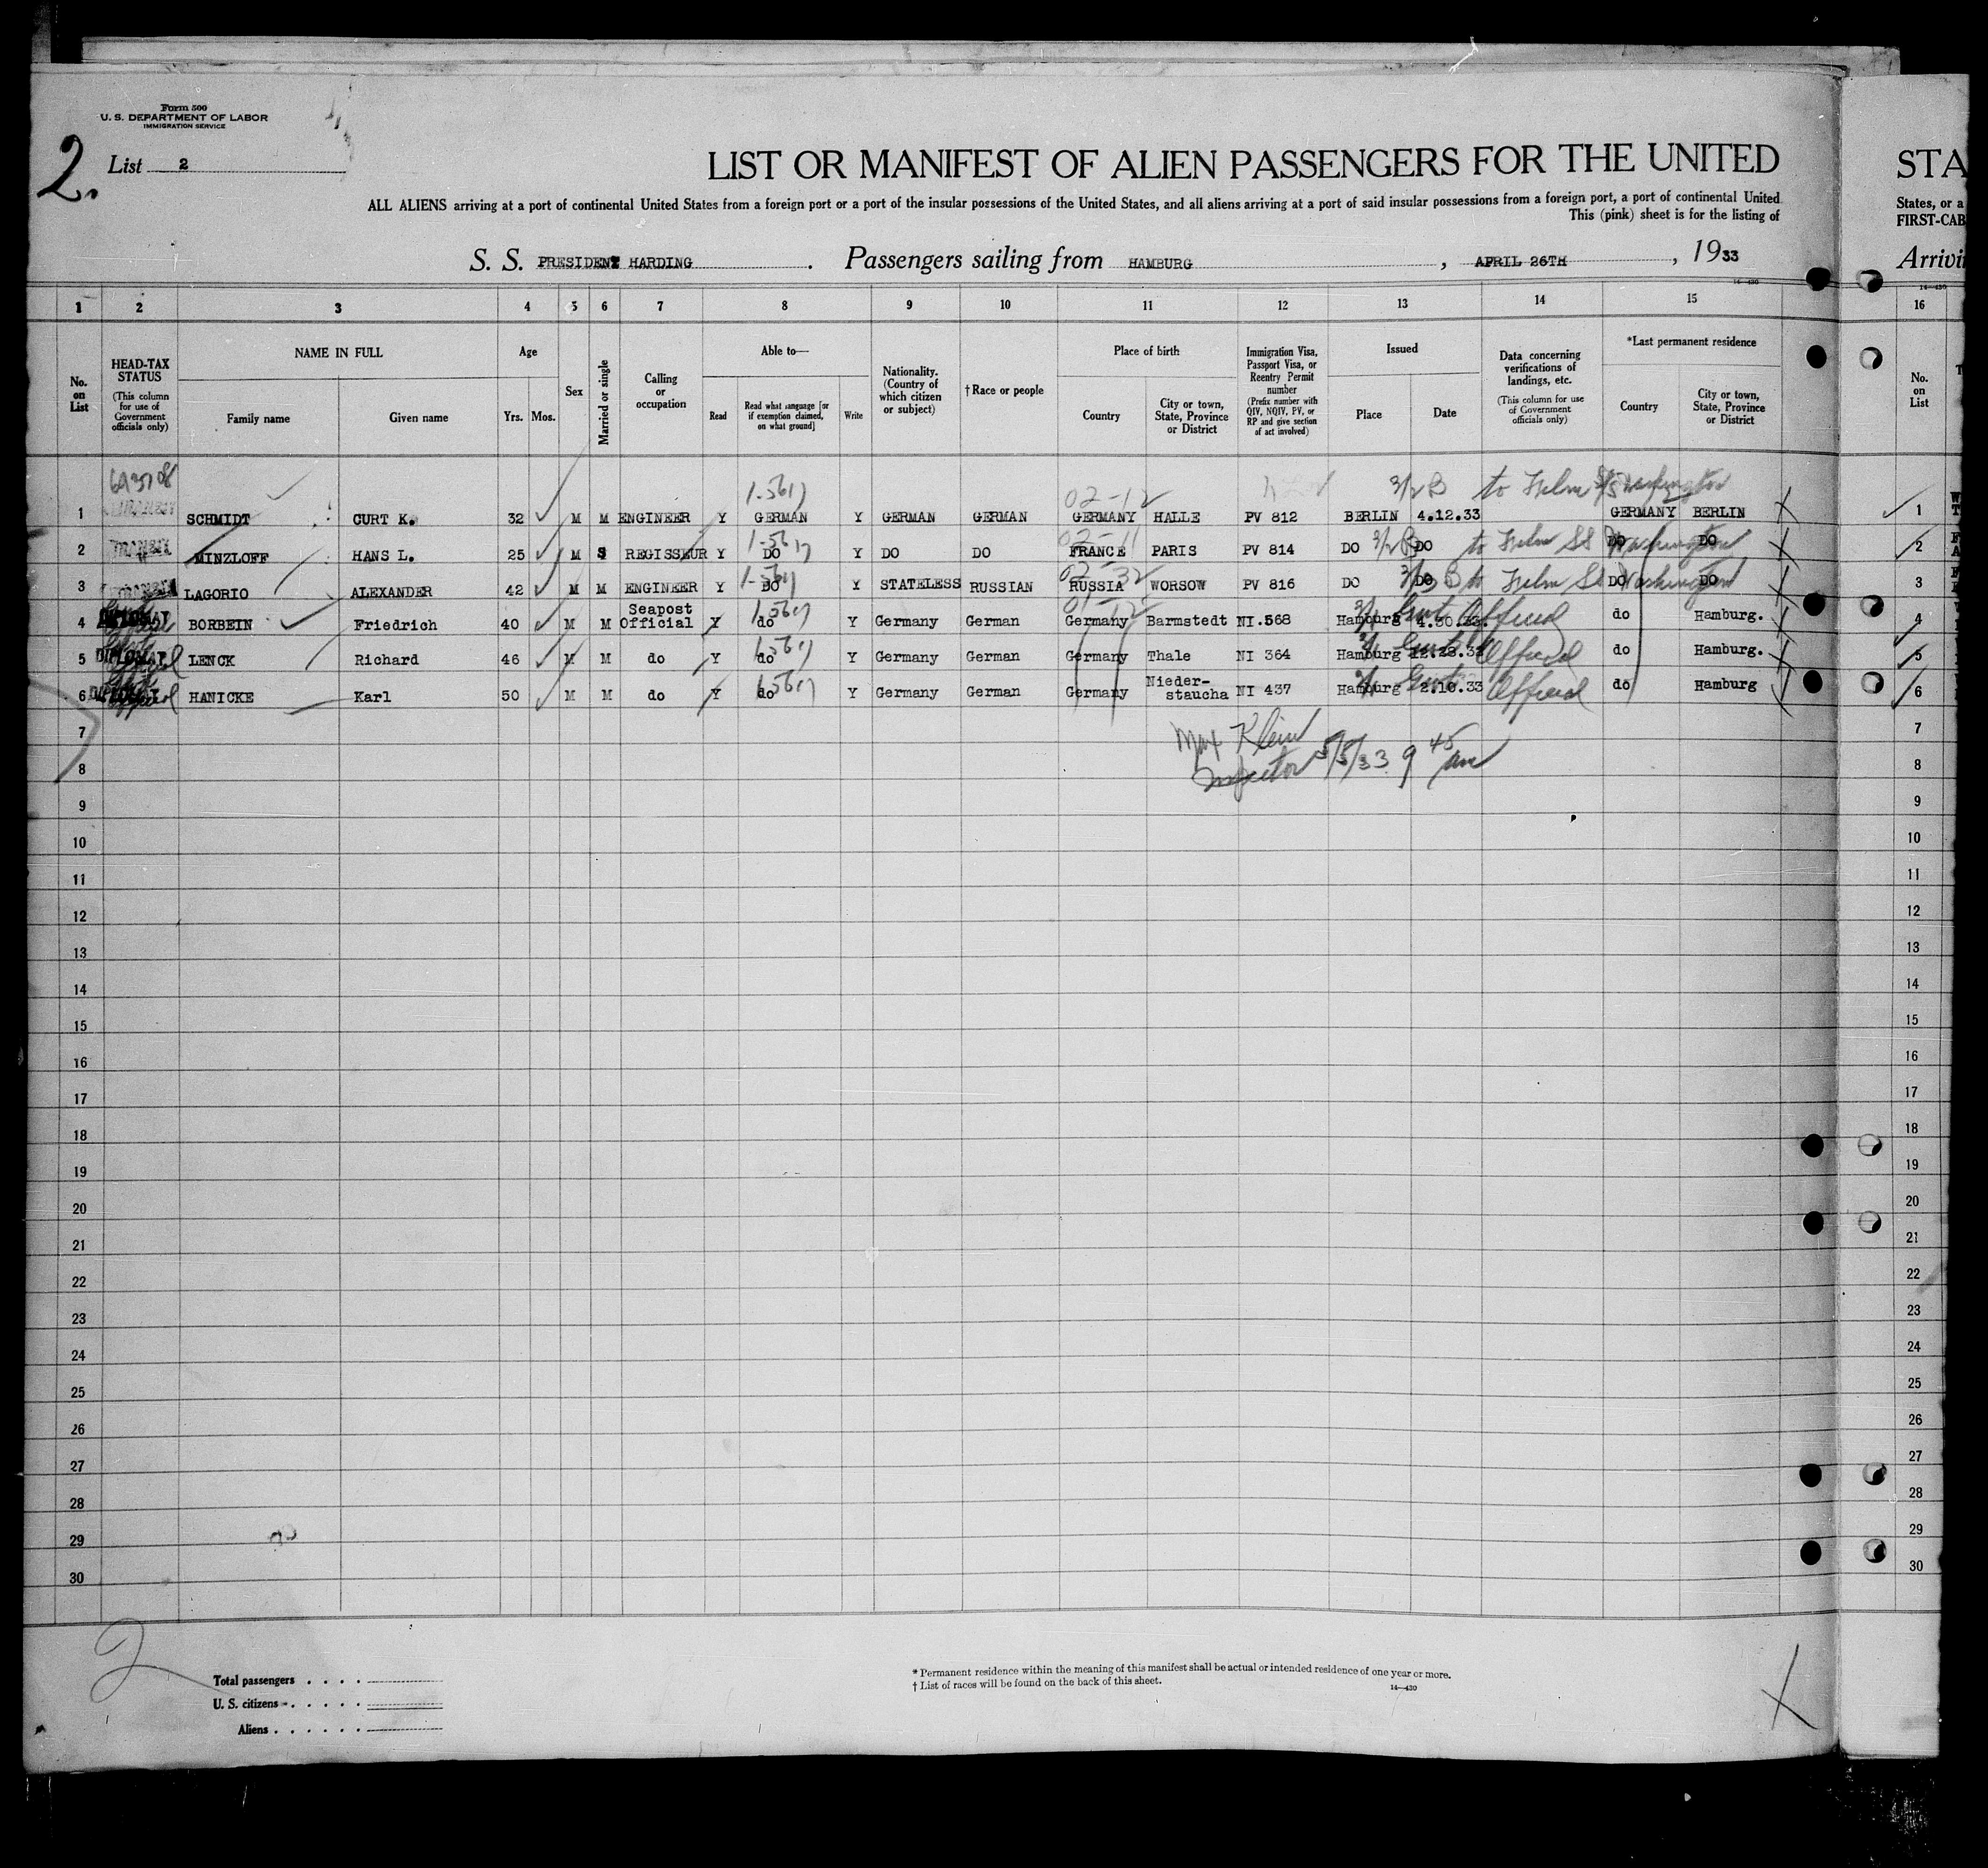 Form 500
U. S. DEPARTMENT OF LABOR
IMMIGRATION SERVICE
2.
List 2
LIST OR MANIFEST OF ALIEN PASSENGERS FOR THE UNITED
STA
ALL ALIENS arriving at a port of continental United States from a foreign port or a port of the insular possessions of the United States, and all aliens arriving at a port of said insular possessions from a foreign port, a port of continental United
States, or a
This (pink) sheet is for the listing of
FIRST-CAB
S. S. PRESIDENT HARDING . Passengers sailing from HAMBURG , APRIL 26TH , 1933
Arrivi
14—430
1 2 3 4 5 6 7 8 9 10 11 12 13 14 15 16
No. on List
HEAD-TAX STATUS (This column for use of Government officials only)
NAME IN FULL
Family name
Given name
Age
Yrs. Mos.
Sex
Married or single
Calling or occupation
Able to—
Read
Read what language [or if exemption claimed, on what ground]
Write
Nationality. (Country of which citizen or subject)
† Race or people
Place of birth
Country
City or town, State, Province or District
Immigration Visa, Passport Visa, or Reentry Permit number (Prefix number with QIV, NQIV, PV, or RP and give section of act involved)
Issued
Place
Date
Data concerning verifications of landings, etc. (This column for use of Government officials only)
*Last permanent residence
Country
City or town, State, Province or District
No. on List
1-5617 02-12 3/2 B to Washington
1 SCHMIDT CURT K. 32 M M ENGINEER Y GERMAN Y GERMAN GERMAN GERMANY HALLE PV 812 BERLIN 4.12.33 GERMANY BERLIN 1
2 TRANSIT MINZLOFF HANS L. 25 M S REGISSEUR Y DO Y DO DO FRANCE PARIS PV 814 DO DO to SS Washington DO DO 2
3 LAGORIO ALEXANDER 42 M M ENGINEER Y DO Y STATELESS RUSSIAN RUSSIA WORSOW PV 816 DO DO to SS Washington DO DO 3
4 DIPLOMAT BORBEIN Friedrich 40 M M Seapost Official Y do Y Germany German Germany Barmstedt NI.568 Hamburg Govt Official do Hamburg. 4
5 DIPLOMAT LENCK Richard 46 M M do Y do Y Germany German Germany Thale NI 364 Hamburg Govt Official do Hamburg. 5
6 DIPLOMAT HANICKE Karl 50 M M do Y do Y Germany German Germany Nieder-staucha NI 437 Hamburg 2.10.33 Govt Official do Hamburg 6
7 Max Klein 7
8 Inspector 5/5/33 9 45 am 8
9 9
10 10
11 11
12 12
13 13
14 14
15 15
16 16
17 17
18 18
19 19
20 20
21 21
22 22
23 23
24 24
25 25
26 26
27 27
28 28
29 29
30 30
2
Total passengers
U. S. citizens
Aliens
* Permanent residence within the meaning of this manifest shall be actual or intended residence of one year or more.
† List of races will be found on the back of this sheet.
14—430